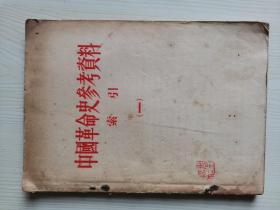 中國革命史參考資料
索引
(一)